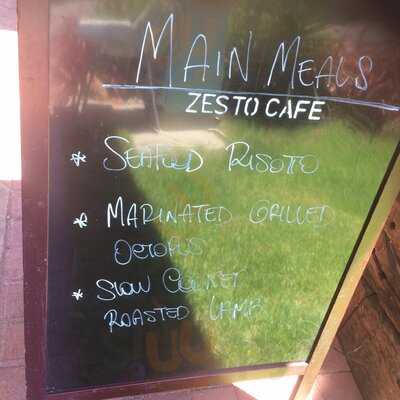 MAIN MEALS
ZESTO CAFE
* SEAFOOD RISOTTO
* MARINATED GRILLED
OCTOPUS
* SLOW
ROASTED LAMB